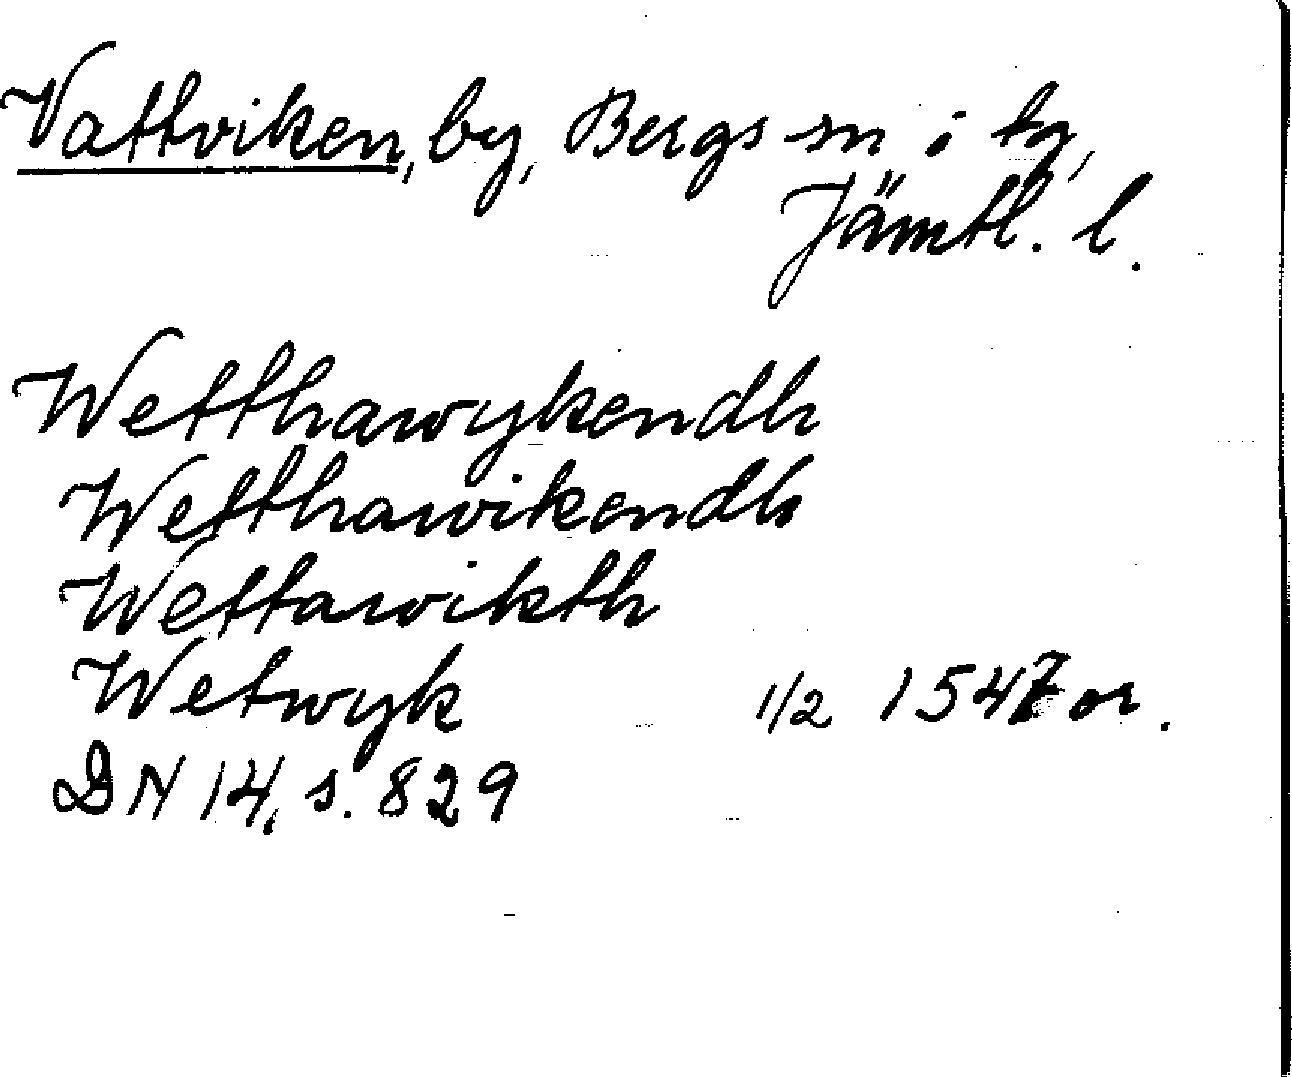 Vattviken, by, Bergs sn o tg,
Jämtl. l.
Wetthawykendh
Wetthawikendh
Wettawikth
Wetwyk 1/2 1547 or.
DN 14, s. 829